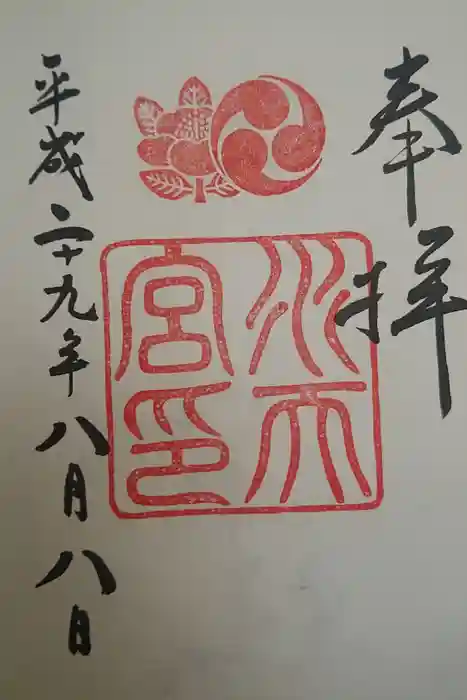 奉拝
水天
宮印
平成二十九年八月八日